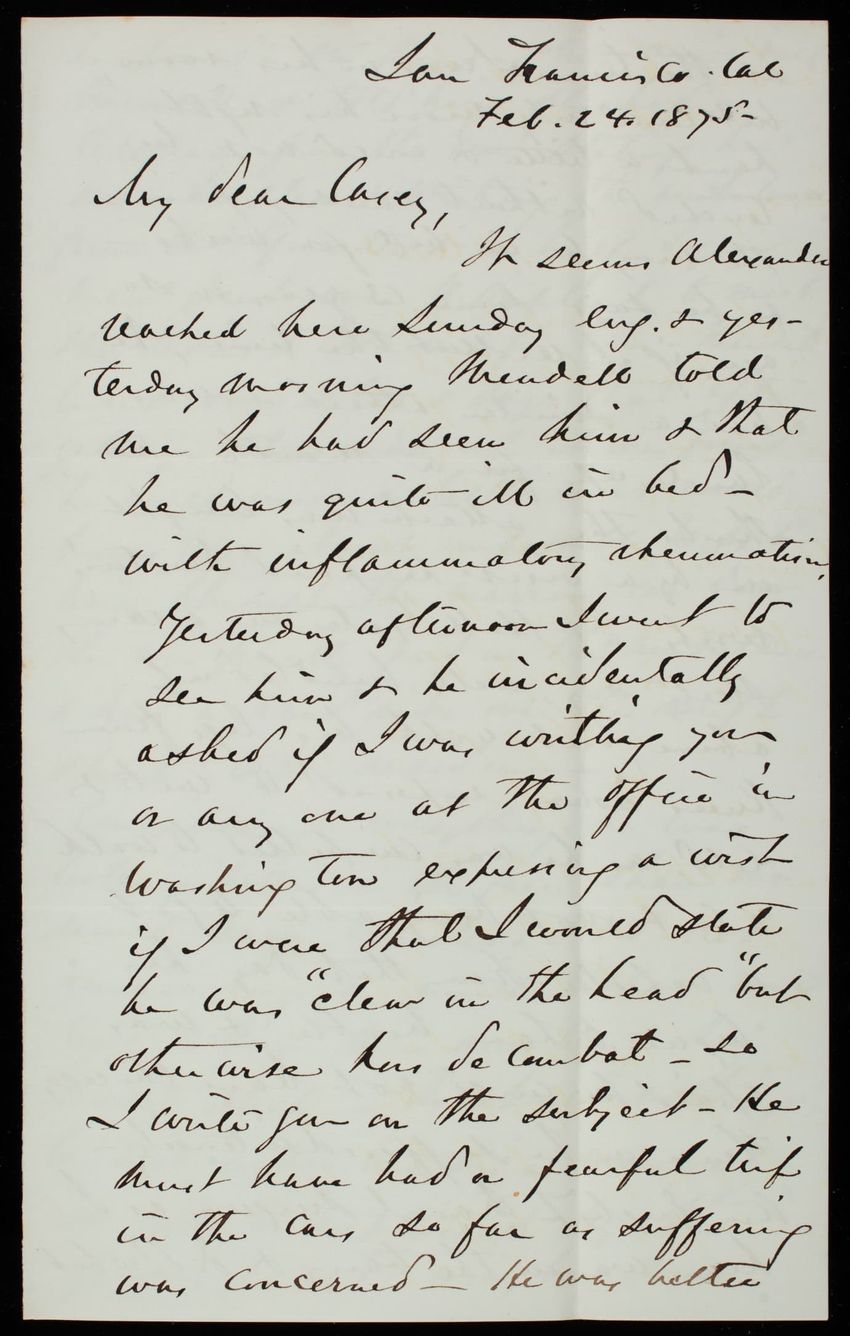 San Francisco. Cal
Feb. 24. 1875-
My dear Casey,
It seems Alexander
reached here Sunday evg. & yes-
terday morning Mendell told
me he had seen him & that
he was quite ill in bed -
with inflammatory rheumatism,
Yesterday afternoon I went to
see him & he incidentally
asked if I was writing you
or any one at the office in
Washington expressing a wish
if I were that I would state
he was "clear in the head" but
otherwise hors de combat - so
I write you on the subject - He
must have had a fearful trip
in the cars so far as suffering
was concerned - He was better